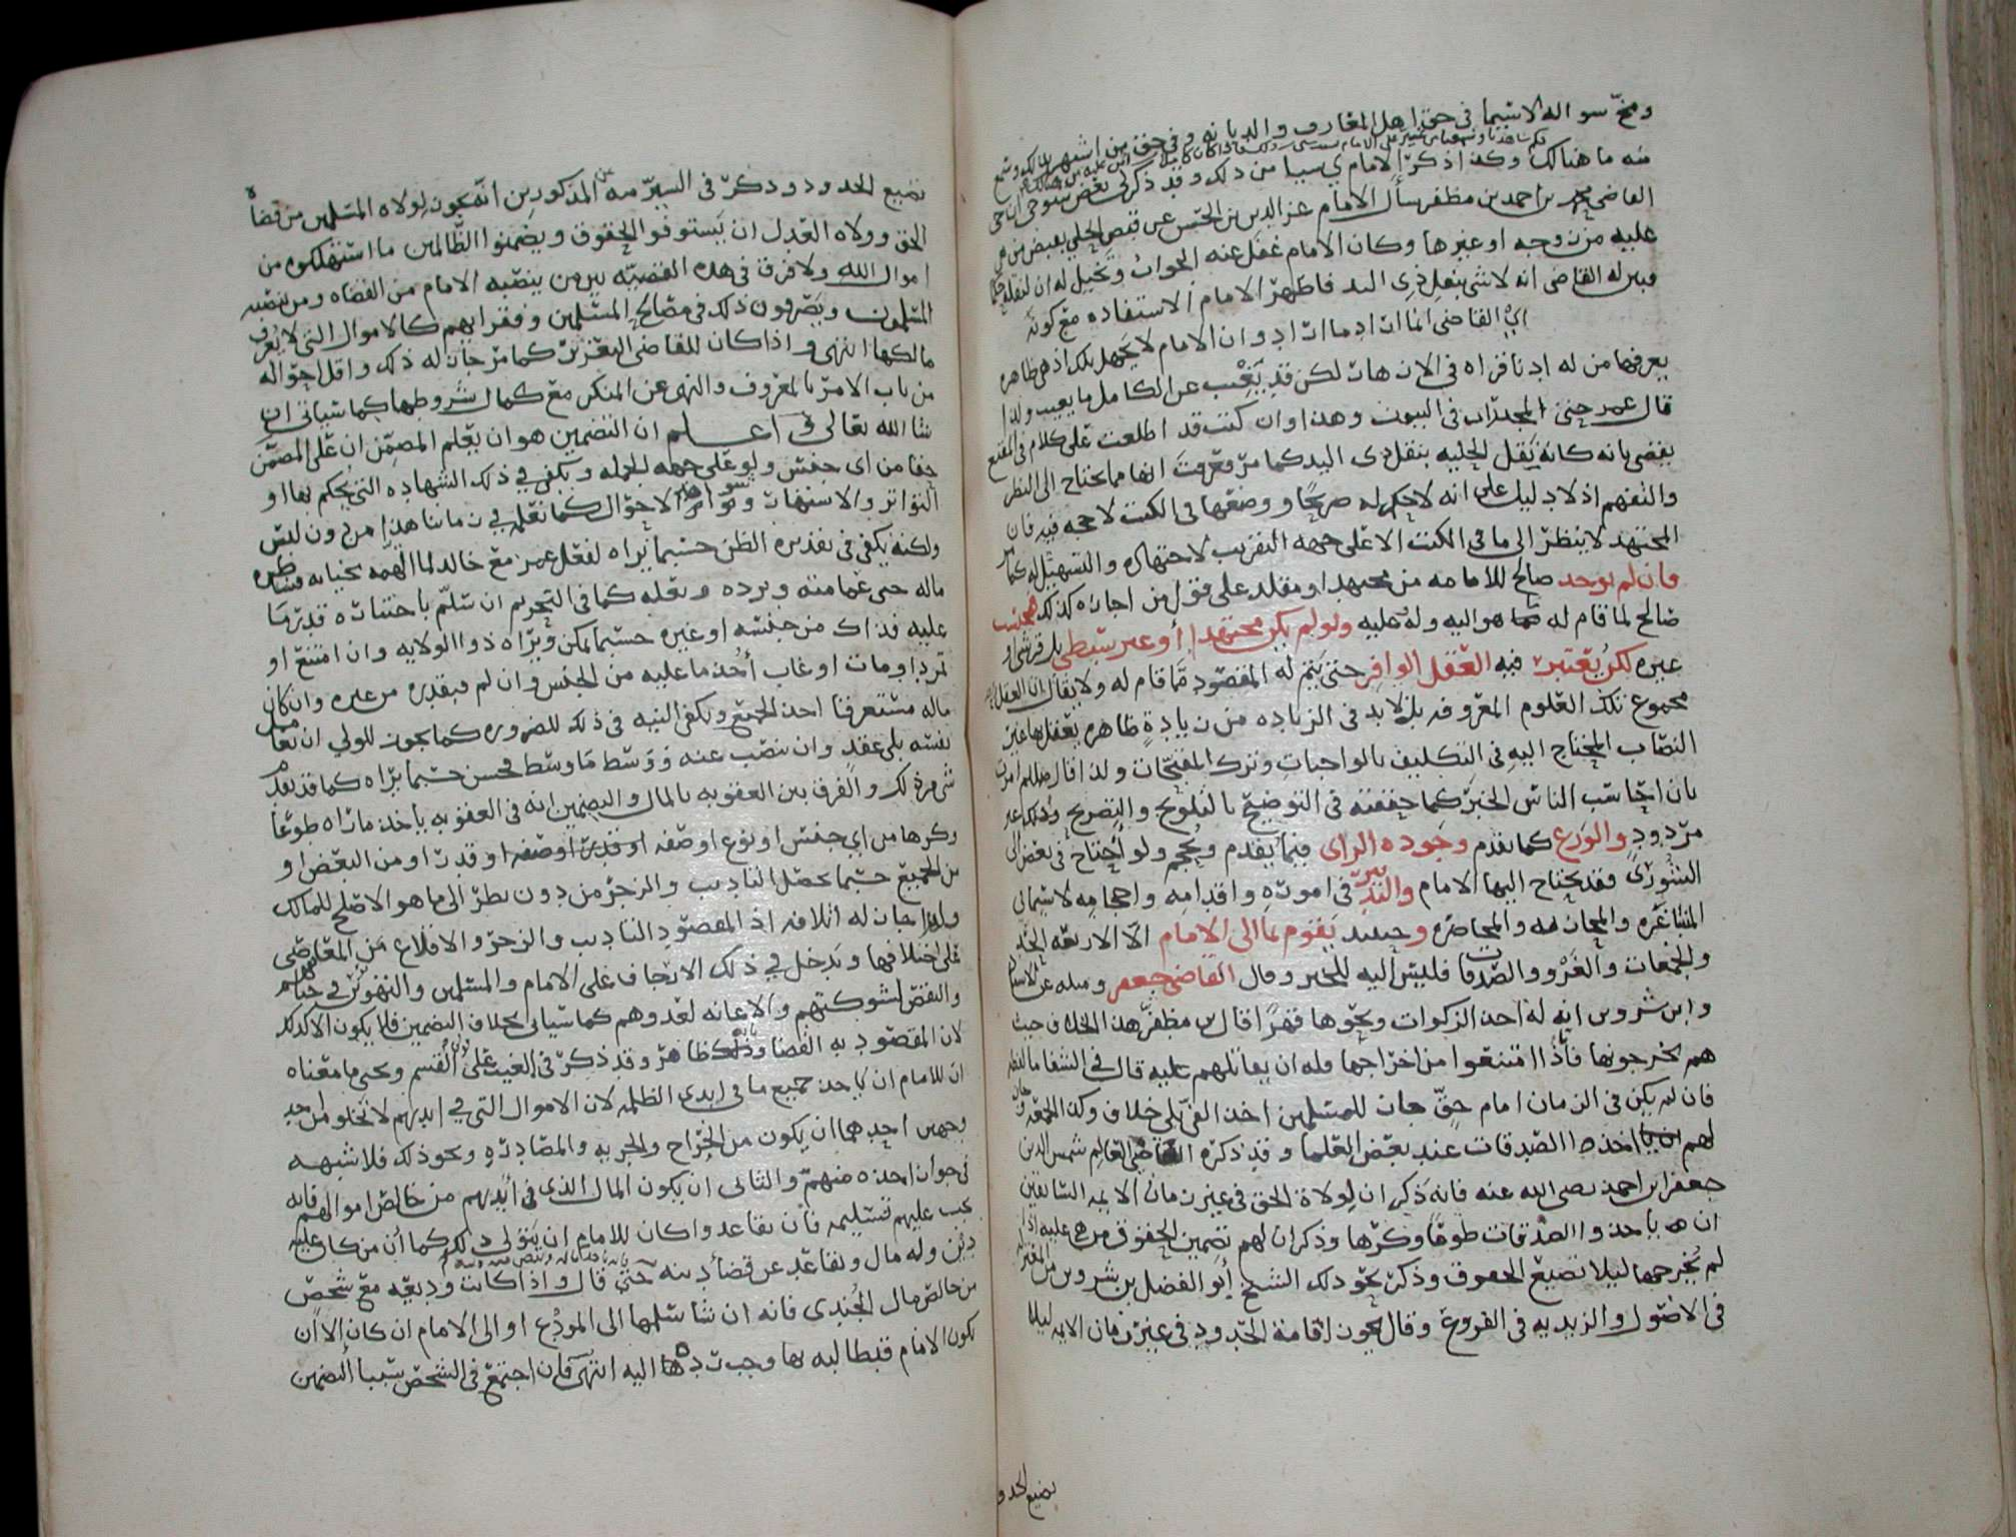 وصح سواله لاسيما في حق اهل المعارف والديانه وفي حق من اشتهر بذلك وسمع
منه ما هنالك وكذا ذكر الامام ي سببا من ذلك وقد ذكر لي بعض شيوخي ان حي
القاضي محمد بن احمد بن مظفر سأل الامام عز الدين بن الحسن عن قبض الحلي بعيض من هي
عليه من زوجه او غيرها وكان الامام غفل عنه الجواب وتخيل له ان لنقله حكما
فبين له القاضي انه لا شي بنقل ذي اليد فاظهر الامام الاستفاده مع كونه
اي القاضي انما اراد ما اراد وان الامام لا يجهل ذلك اذ هي ظاهره
يعرفها من له ادنا قراه في الازهار لكن قد يغيب عن الكامل ما يغيب ولذا
قال عمر حتى المخدرات في البيوت وهذا وان كنت قد اطلعت على كلام في المقنع
يقضي بانه كانه يقل الحليه بنقل ذي اليد كما مر فعرفت انها مما يحتاج الى النظر
والتفهم اذ لا دليل على انه لا حكم له صريحا ووضعها في الكتب لا حجه فيه فان
المجتهد لا ينظر الى ما في الكتب الا على جهه التقريب لاجتهاده والتسهيل له كما مر
فان لم يوجد صالح للامامه من مجتهد او مقلد على قول من اجازه كذلك فمحتسب
صالح لما قام له هو اليه وله عليه ولو لم يكن مجتهدا أو غير سبطي بل قرشي او
غيره لكن يعتبر فيه العقل الوافر حتى يتم له المقصود مما قام له ولا يقال ان العقل
مجموع تلك العلوم المعروفه بل لا بد في الزياده من زيادة ظاهره يعقل بها غير
النصاب المحتاج اليه في التكليف بالواجبات وترك المقبحات ولذا قال صلعم امرت
بان احاسب الناس الخبر كما حققته في التوضيح بالتلويح والتصريح وذلك غير
مردود والورع كما تقدم وجوده الراى فيما يقدم ويحجم ولو احتاج في بعض الى
الشورى فقد يحتاج اليها الامام والتدبير في اموره واقدامه واحجامه لا سيما في
المشاغره والمجازفه والمحاصره وحينئذ يقوم بما الى الامام الا الاربعه الحد
والجمعات والغزو والصدقات فليس اليه للخبر وقال القاضي جعفر ومثله عن الاستاذ
وابن شروين انه له اخذ الزكوات ونحوها قهرا قال بن مظفر هذا الخلاف حيث
هم يخرجونها فاذا امتنعوا من اخراجها فله ان يقاتلهم عليه قال في الشفا ما لفظه
فان لم يكن في الزمان امام حق جاز للمسلمين اخذ الفي بلا خلاف وكذا الجمعه وجاز
لهم اخذ الصدقات عند بعض العلما وقد ذكره القاضي العالم شمس الدين
جعفر ابن احمد رضي الله عنه فانه ذكر ان لولاة الحق في غير زمان الايمه السابقين
ان ياخذوا الصدقات طوعا وكرها وذكر ان لهم تضمين الحقوق من هي عليه اذا
لم يخرجها ليلا تضيع الحقوق وذكر نحو ذلك الشيخ ابو الفضل بن شروين من المعتزله
في الاصول والزيديه في الفروع وقال يجوز اقامة الحدود في غير زمان الايمه ليلا
تضيع الحدو
تضيع الحدود وذكر في السير المذكورين انه يجوز لولاه المسلمين من قضاه
الحق وولاه العدل ان يستوفوا الحقوق ويضمنوا الظالمين ما استهلكوه من
اموال الله ولا فرق في هذه القضيه بين من ينصبه الامام من القضاه ومن ينصبه
المسلمون ويصرفون ذلك في مصالح المسلمين وفقرايهم كالاموال التي لا يعرف
مالكها انتهى واذا كان للقاضي التعزير كما مر جاز له ذلك واقل احواله
من باب الامر بالمعروف والنهي عن المنكر مع كمال شروطها كما سياتي ان
شا الله تعالى واعلم ان التضمين هو ان يعلم المضمن ان على المضمن
حقا من اى جنس ولو على جهه الجمله ويكفي في ذلك الشهاده التي يحكم بها او
التواتر والاشتهار وشواهد الاحوال كما نعلمه في زماننا هذا من دون لبس
ولكنه يكفي في تقديره الظن حسبما يراه لفعل عمر مع خالد لما اتهمه بخيانه فشاطره
ماله حتى عمامته وبرده ونعله كما في التحرير ان سلم باختياره قدر ما
عليه فذاك من جنسه او غيره حسبما يمكن ويراه ذوا الولايه وان امتنع او
تمرد او مات او غاب أخذ ما عليه من الجنس وان لم فبقدره من غيره وان كان
ماله مستغرقا اخذ الجميع وتكفي النيه في ذلك للضروره كما يجوز للولي ان يعامل
نفسه بلا عقد وان نصب عنه ووسط ما وسط فحسن حسبما يراه كما قد يفعل
شي من ذلك والفرق بين العقوبه بالمال والتضمين انه في العقوبه ياخذ ما راه طوعا
وكرها من اي جنس او نوع او صفه او قدر او من البعض او
من الجميع حسبما يحصل التاديب والزجر من دون نظر الى ما هو الاصلح للمالك
ولهذا جاز له اتلافه اذ المقصود التاديب والزجر والاقلاع من المعاصي
على اختلافها ويدخل في ذلك الارجاف على الامام والمسلمين والتهوين في جنابهم
والنقض لشوكتهم والاعانه لعدوهم كما سياتي بخلاف التضمين فلا يكون الا كذلك
لان المقصود به القضا وذلك ظاهر وقد ذكر في الغيث على القسم ويحي ما معناه
ان للامام ان ياخذ جميع ما في ايدي الظلمه لان الاموال التي في ايديهم لا تخلو من احد
وجهين احدهما ان يكون من الخراج والجزيه والمصادره ونحو ذلك فلا شبهه
في جواز اخذه منهم والثاني ان يكون المال الذي في ايديهم من خالص اموالهم فانه
يجب عليهم تسليمه فان تقاعدوا كان للامام ان يتولى ذلك كما أن من كان عليه
دين وله مال وتقاعد عن قضأ دينه حتى قال واذا كانت وديعه مع شخص
من خالص مال الجندى فانه ان شا سلمها الى المودع او الى الامام ان كان الا ان
يكون الامام قد طالبه بها وجب ردها اليه انتهى فان اجتمع في الشخص سببا التضمين